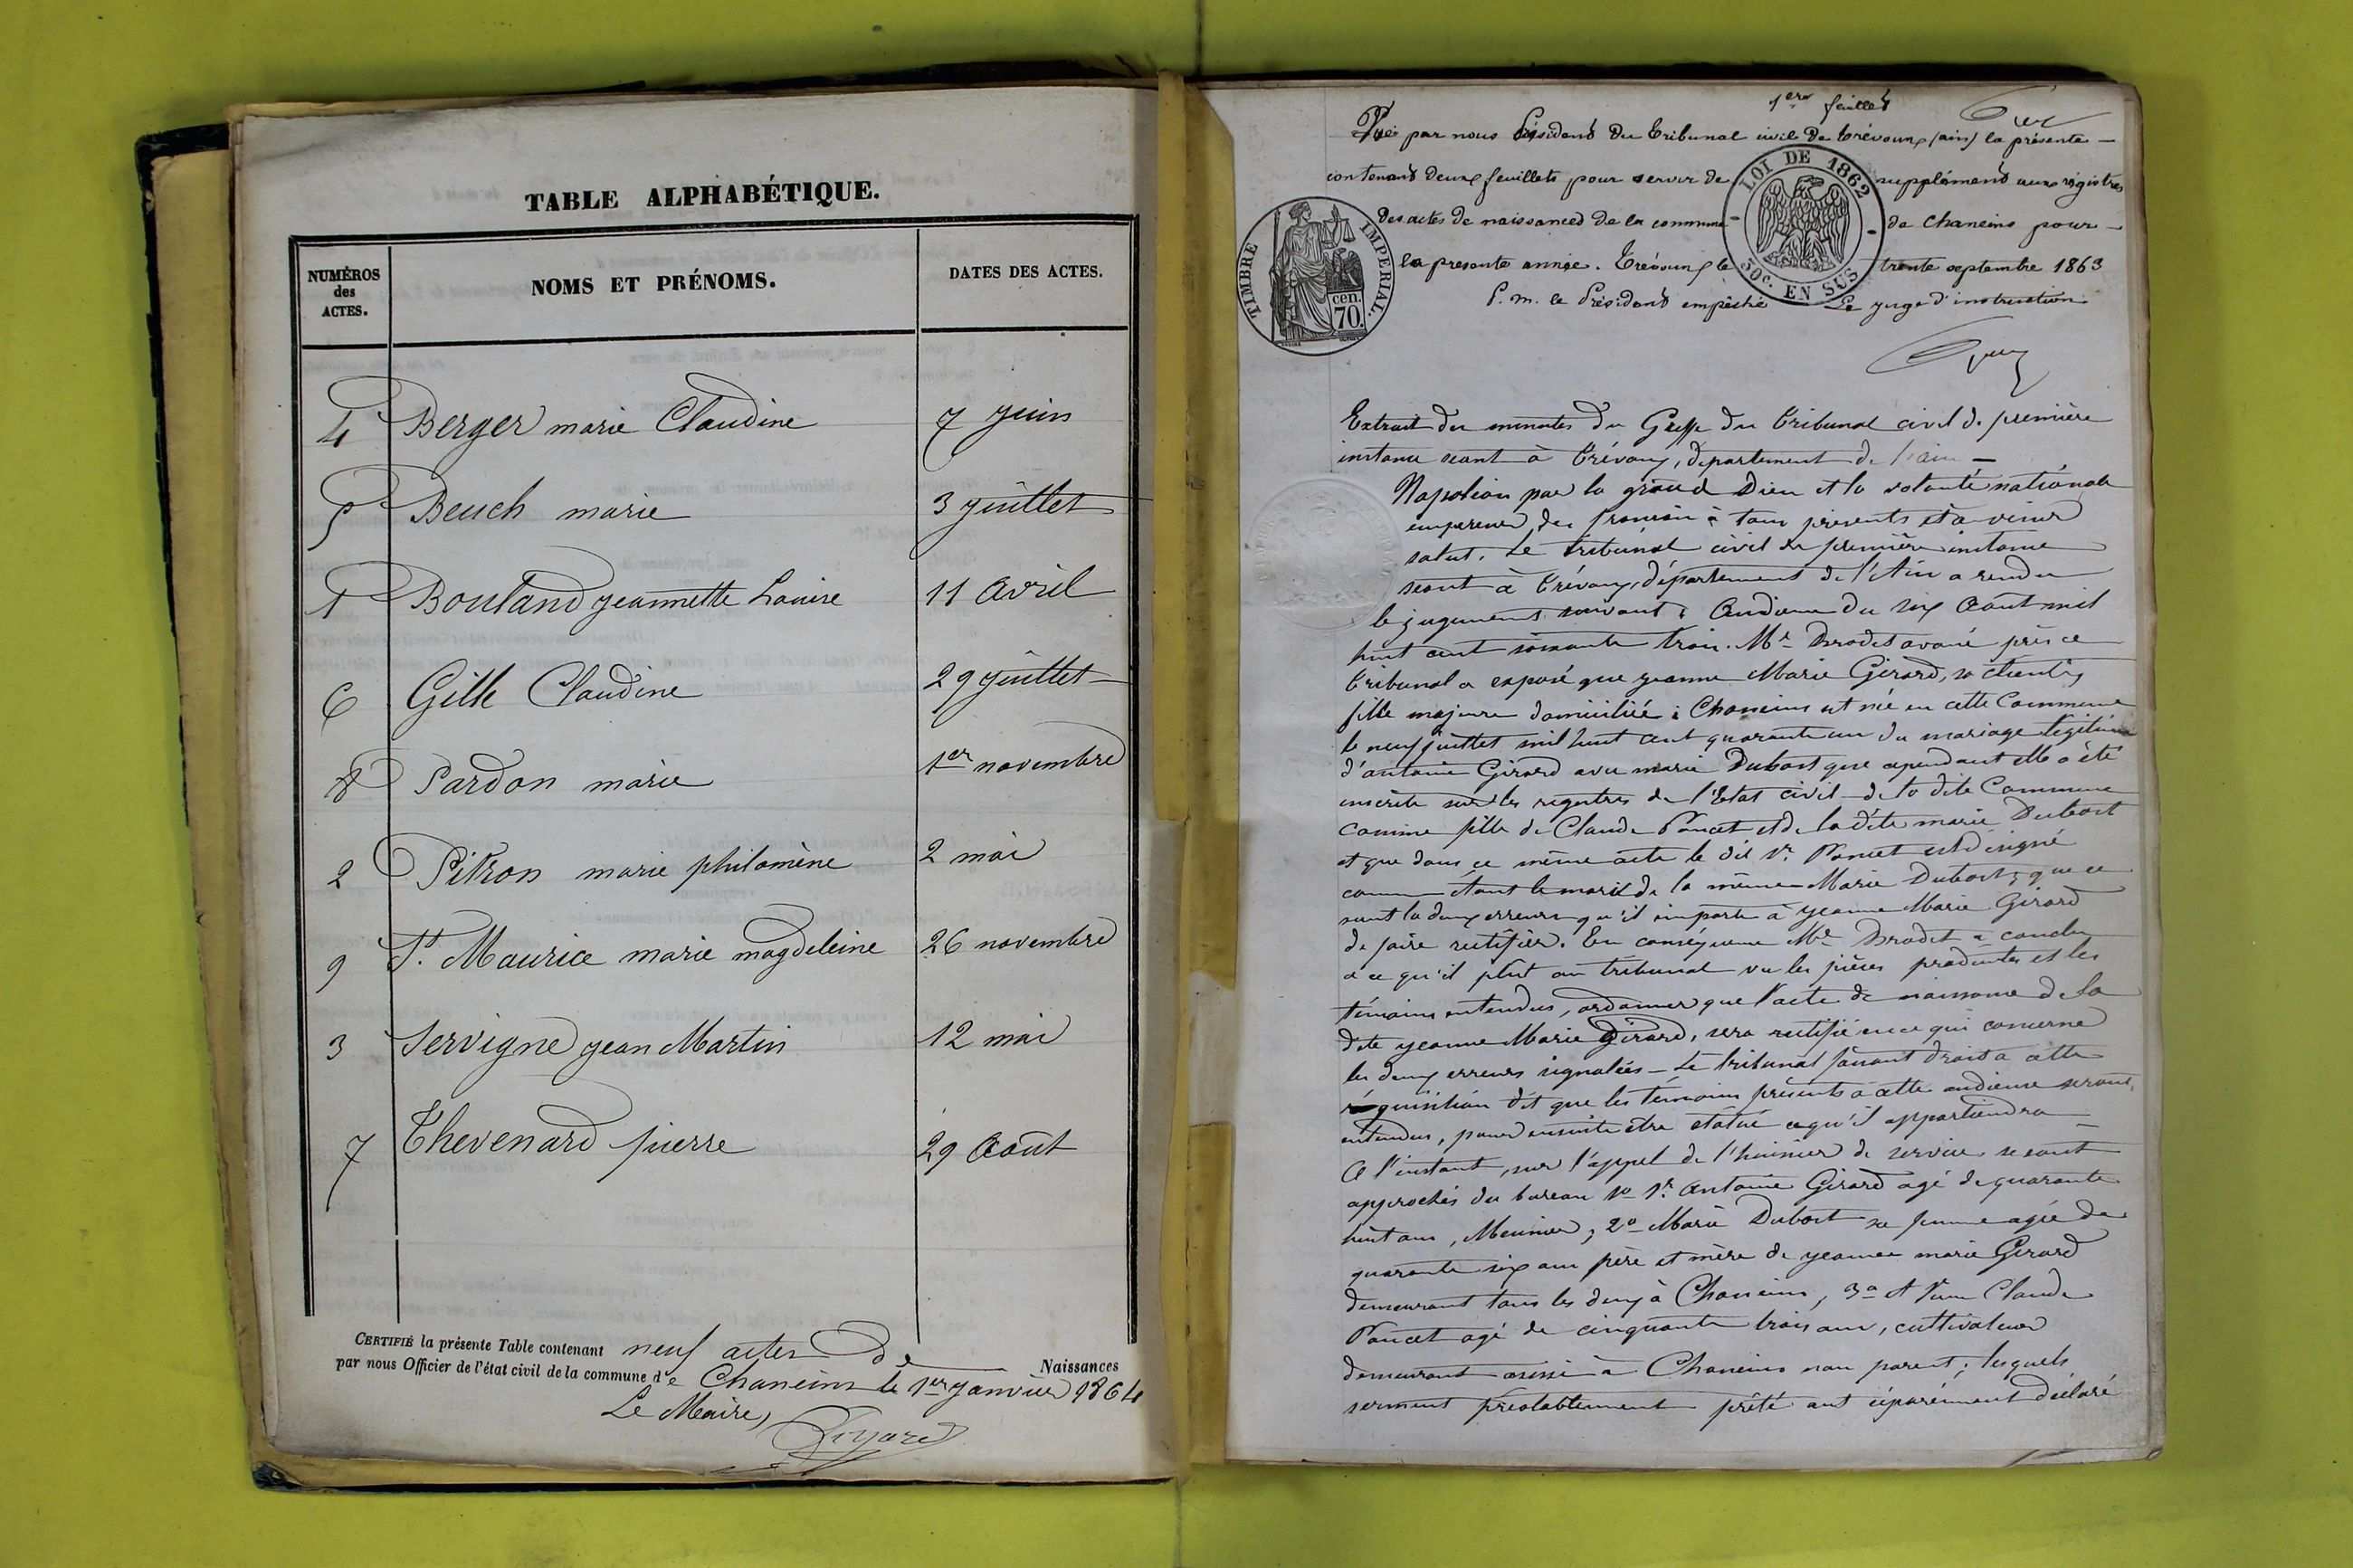 TABLE ALPHABÉTIQUE.
NUMÉROS des ACTES. NOMS ET PRÉNOMS. DATES DES ACTES.
4 Berger marie Claudine 7 juin
5 Beuch marie 3 juillet
1 Bouland jeannette Louise 11 avril
6 Gille Claudine 29 juillet
8 Pardon marie 1er novembre
2 Pitron marie philomène 2 mai
9 St. Maurice marie magdeleine 26 novembre
3 Servigne jean Martin 12 mai
7 Thevenard pierre 29 Août
CERTIFIÉ la présente Table contenant neuf actes de Naissances
par nous Officier de l'état civil de la commune de Chaneins le 1er janvier 1864
Le Maire,
1ere feuillet
par nous Président du tribunal civil de trévoux (ain) la présente
contenant deux feuillets pour servir de supplément aux régistres
des actes de naissances de la commune de Chaneins pour
la présente année. Trévoux le trente septembre 1863
P. m. le Président empêché Le juge d'instruction
TIMBRE IMPERIAL.
cen. 70.
LOI DE 1862
50c. EN SUS
Extrait des minutes du Greffe du tribunal civil de première
instance séant à Trévoux, département de l'ain
Napoléon par la grâce de Dieu et la volonté nationale
empereur des français à tous présents et à venir
salut. Le tribunal civil de première instance
séant à Trévoux, département de l'Ain a rendu
le jugement suivant : Audience du six Août mil
huit cent soixante trois. Me Brodet avoué près ce
tribunal a exposé que jeanne Marie Girard, sa cliente,
fille majeure domiciliée à Chaneins est née en cette Commune
le neuf juillet mil huit cent quarante un du mariage légitime
d'antoine Girard avec marie Dubost que cependant elle a été
inscrite sur les registres de l'Etat civil de la dite Commune
comme fille de Claude Poncet et de la dite marie Dubost
et que dans ce même acte le dit Sr. Poncet est désigné
comme étant le mari de la même Marie Dubost ; que ce
sont là deux erreurs qu'il importe à jeanne Marie Girard
de faire rectifier. En conséquence Me Brodet a conclu
à ce qu'il plût au tribunal vu les pièces produites et les
témoins entendus, ordonner que l'acte de naissance de la
dite jeanne Marie Girard, sera rectifié en ce qui concerne
les deux erreurs signalées - Le tribunal faisant droit à cette
réquisition dit que les témoins présents à cette audience seront
entendus, pour ensuite être statué ce qu'il appartiendra
A l'instant, sur l'appel de l'huissier de service se sont
approchés du bureau 1o Sr. Antoine Girard agé de quarante
huit ans, Meunier, 2o Marie Dubost sa femme agée de
quarante six ans père et mère de jeanne marie Girard
demeurant tous les deux à Chaneins, 3o et Claude
Poncet agé de cinquante trois ans, cultivateur
demeurant aussi à Chaneins non parent ; lesquels
serment préalablement prêté ont séparément déclaré